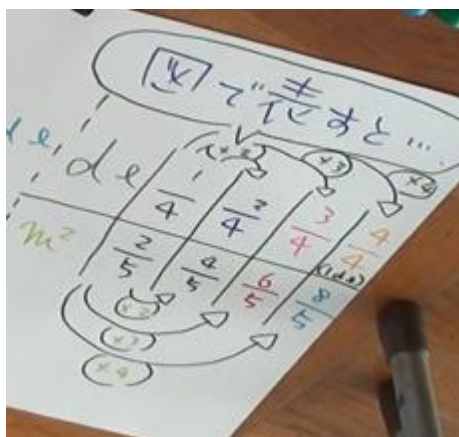 図で表すと…
(×2) ×3 ×4
dl 1/4 2/4 3/4 4/4
(1dl)
m² 2/5 4/5 6/5 8/5
×2
×3
×4